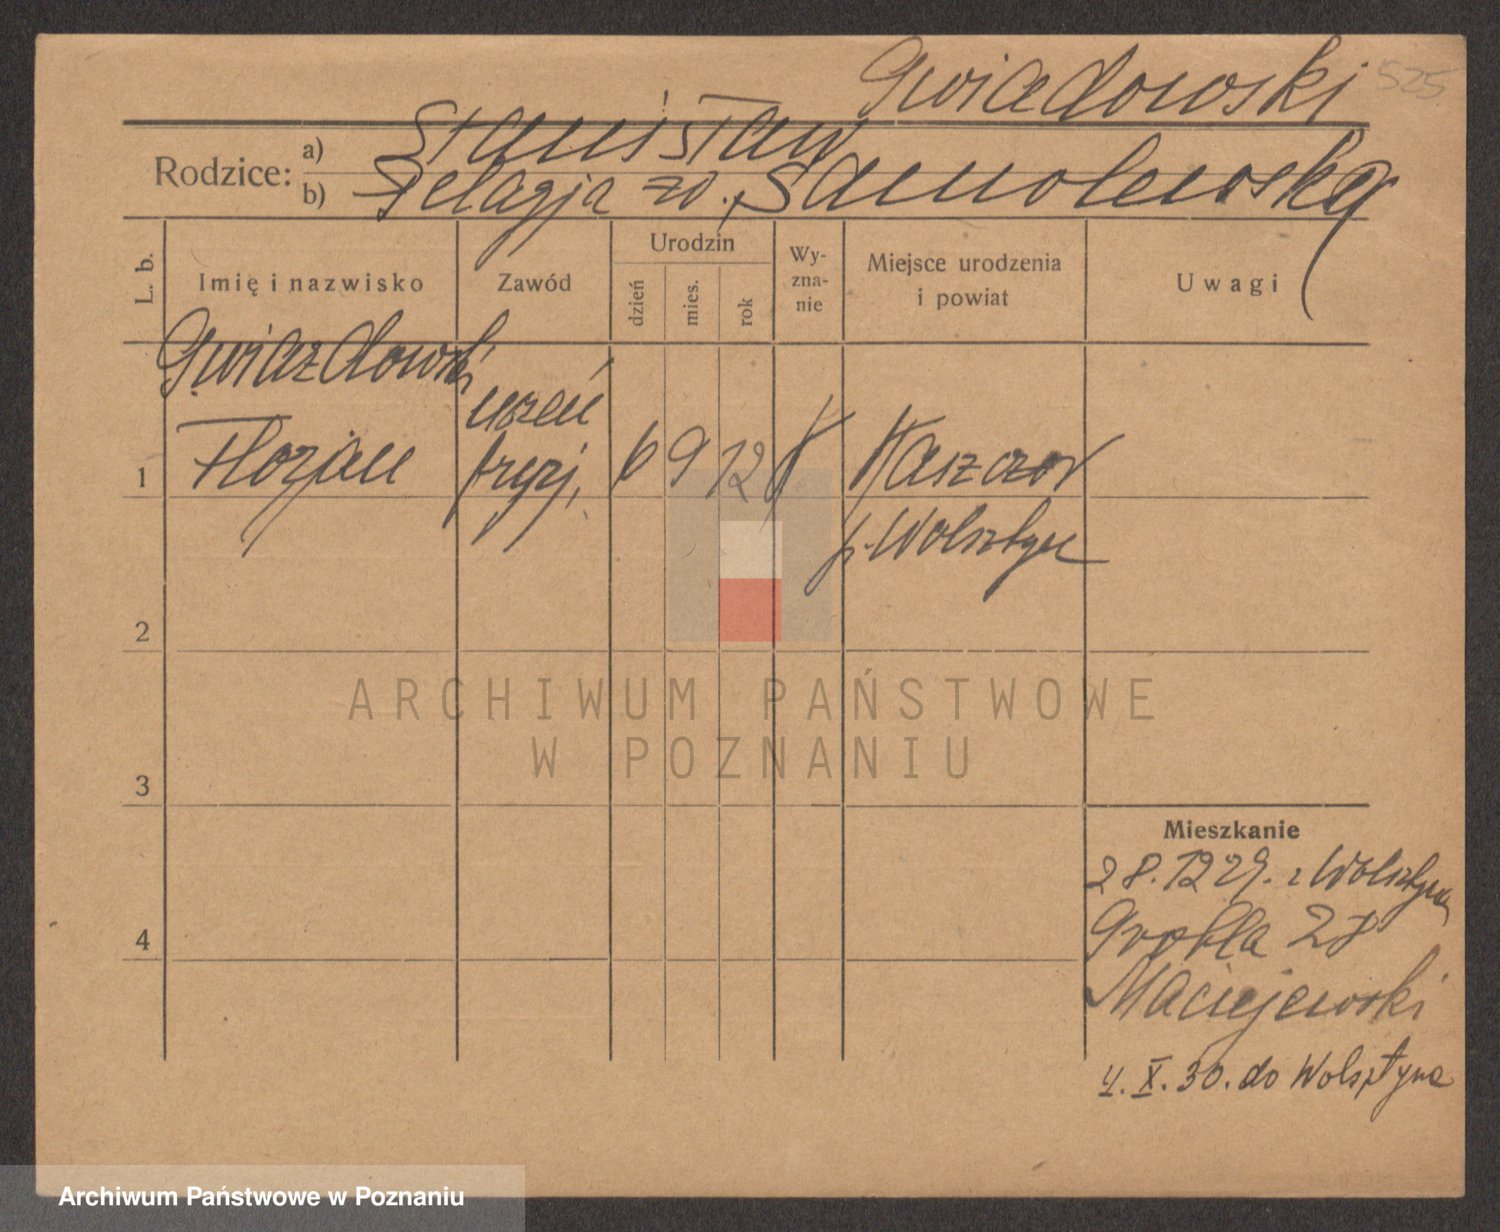 Gwiazdowski 525
Rodzice: a) Stanisław
b) Pelagja zd. Samolewska
L. b.
Imię i nazwisko
Zawód
Urodzin
dzień
mies.
rok
Wy-
zna-
nie
Miejsce urodzenia
i powiat
Uwagi
Gwiazdowski
uczeń
1 Florjan fryzj. 6 9 12 k Kaszczor
p. Wolsztyn
2
3
4
ARCHIWUM PAŃSTWOWE
W POZNANIU
Mieszkanie
28.1229. z Wolsztyna
Grobla 28
Maciejewski
4. X. 30. do Wolsztyna
Archiwum Państwowe w Poznaniu